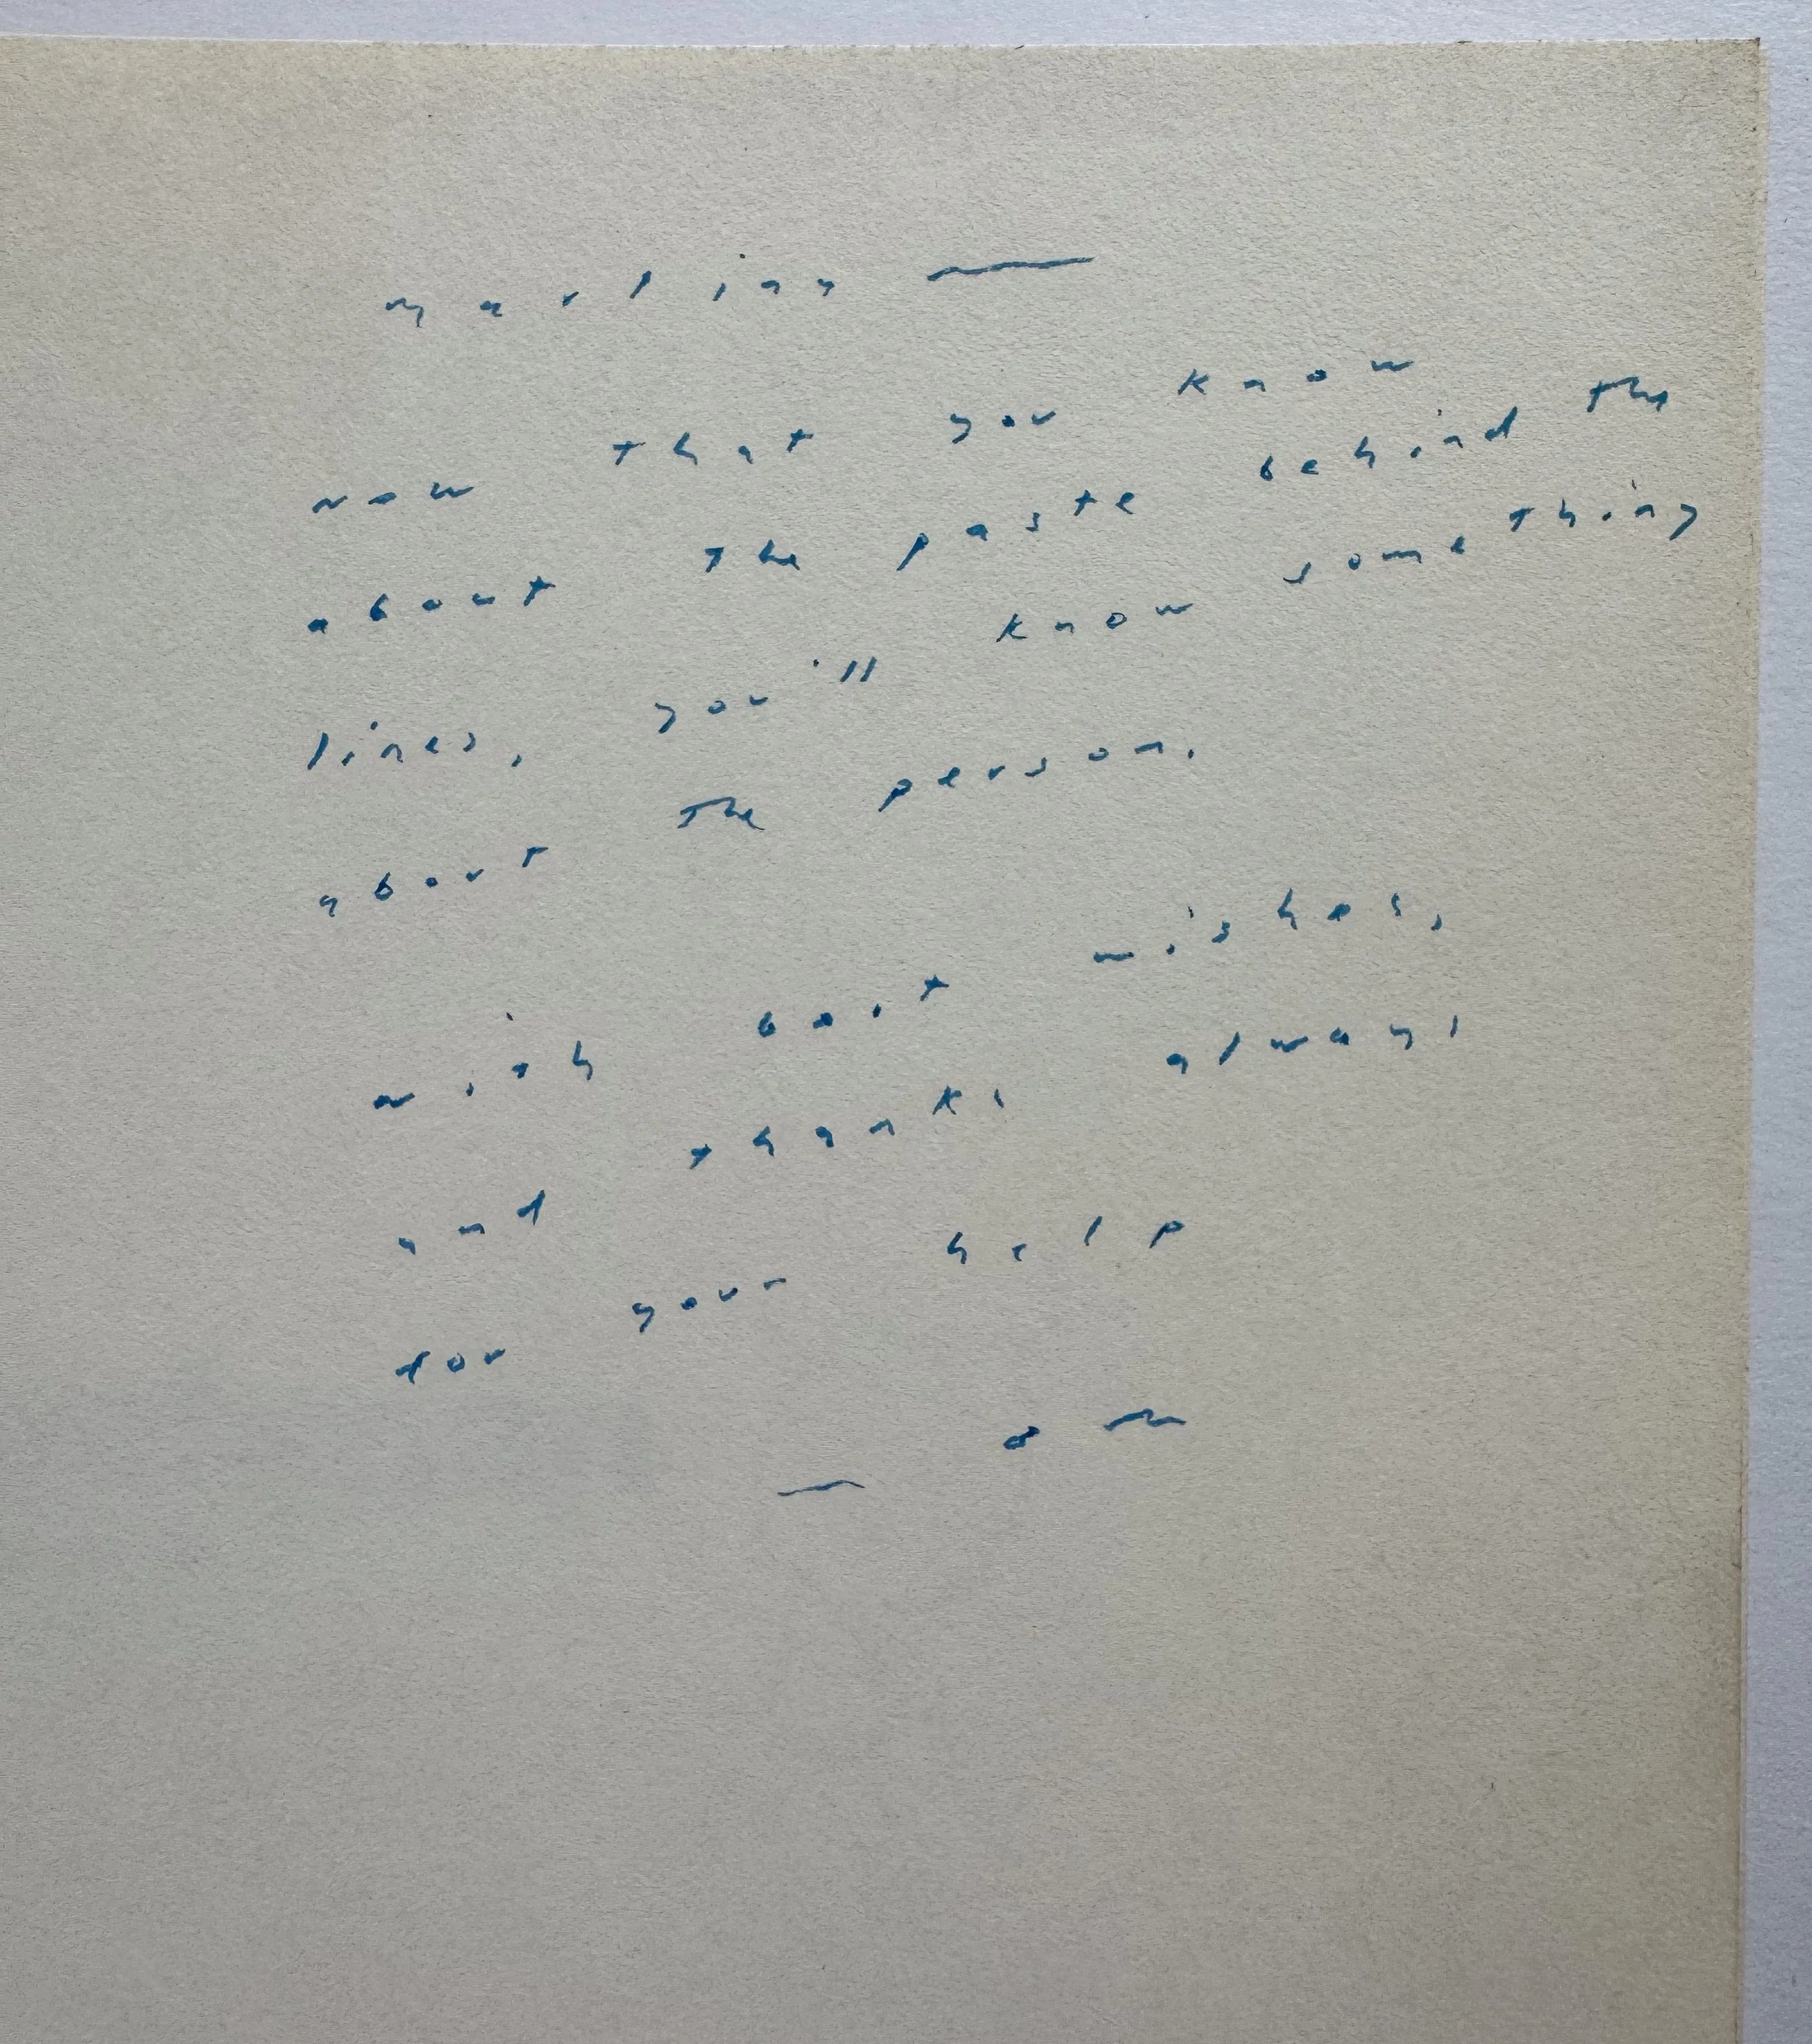 now that you know
about the paste behind the
lines, you'll know something
about the person.
with best wishes,
and thanks always
for your help